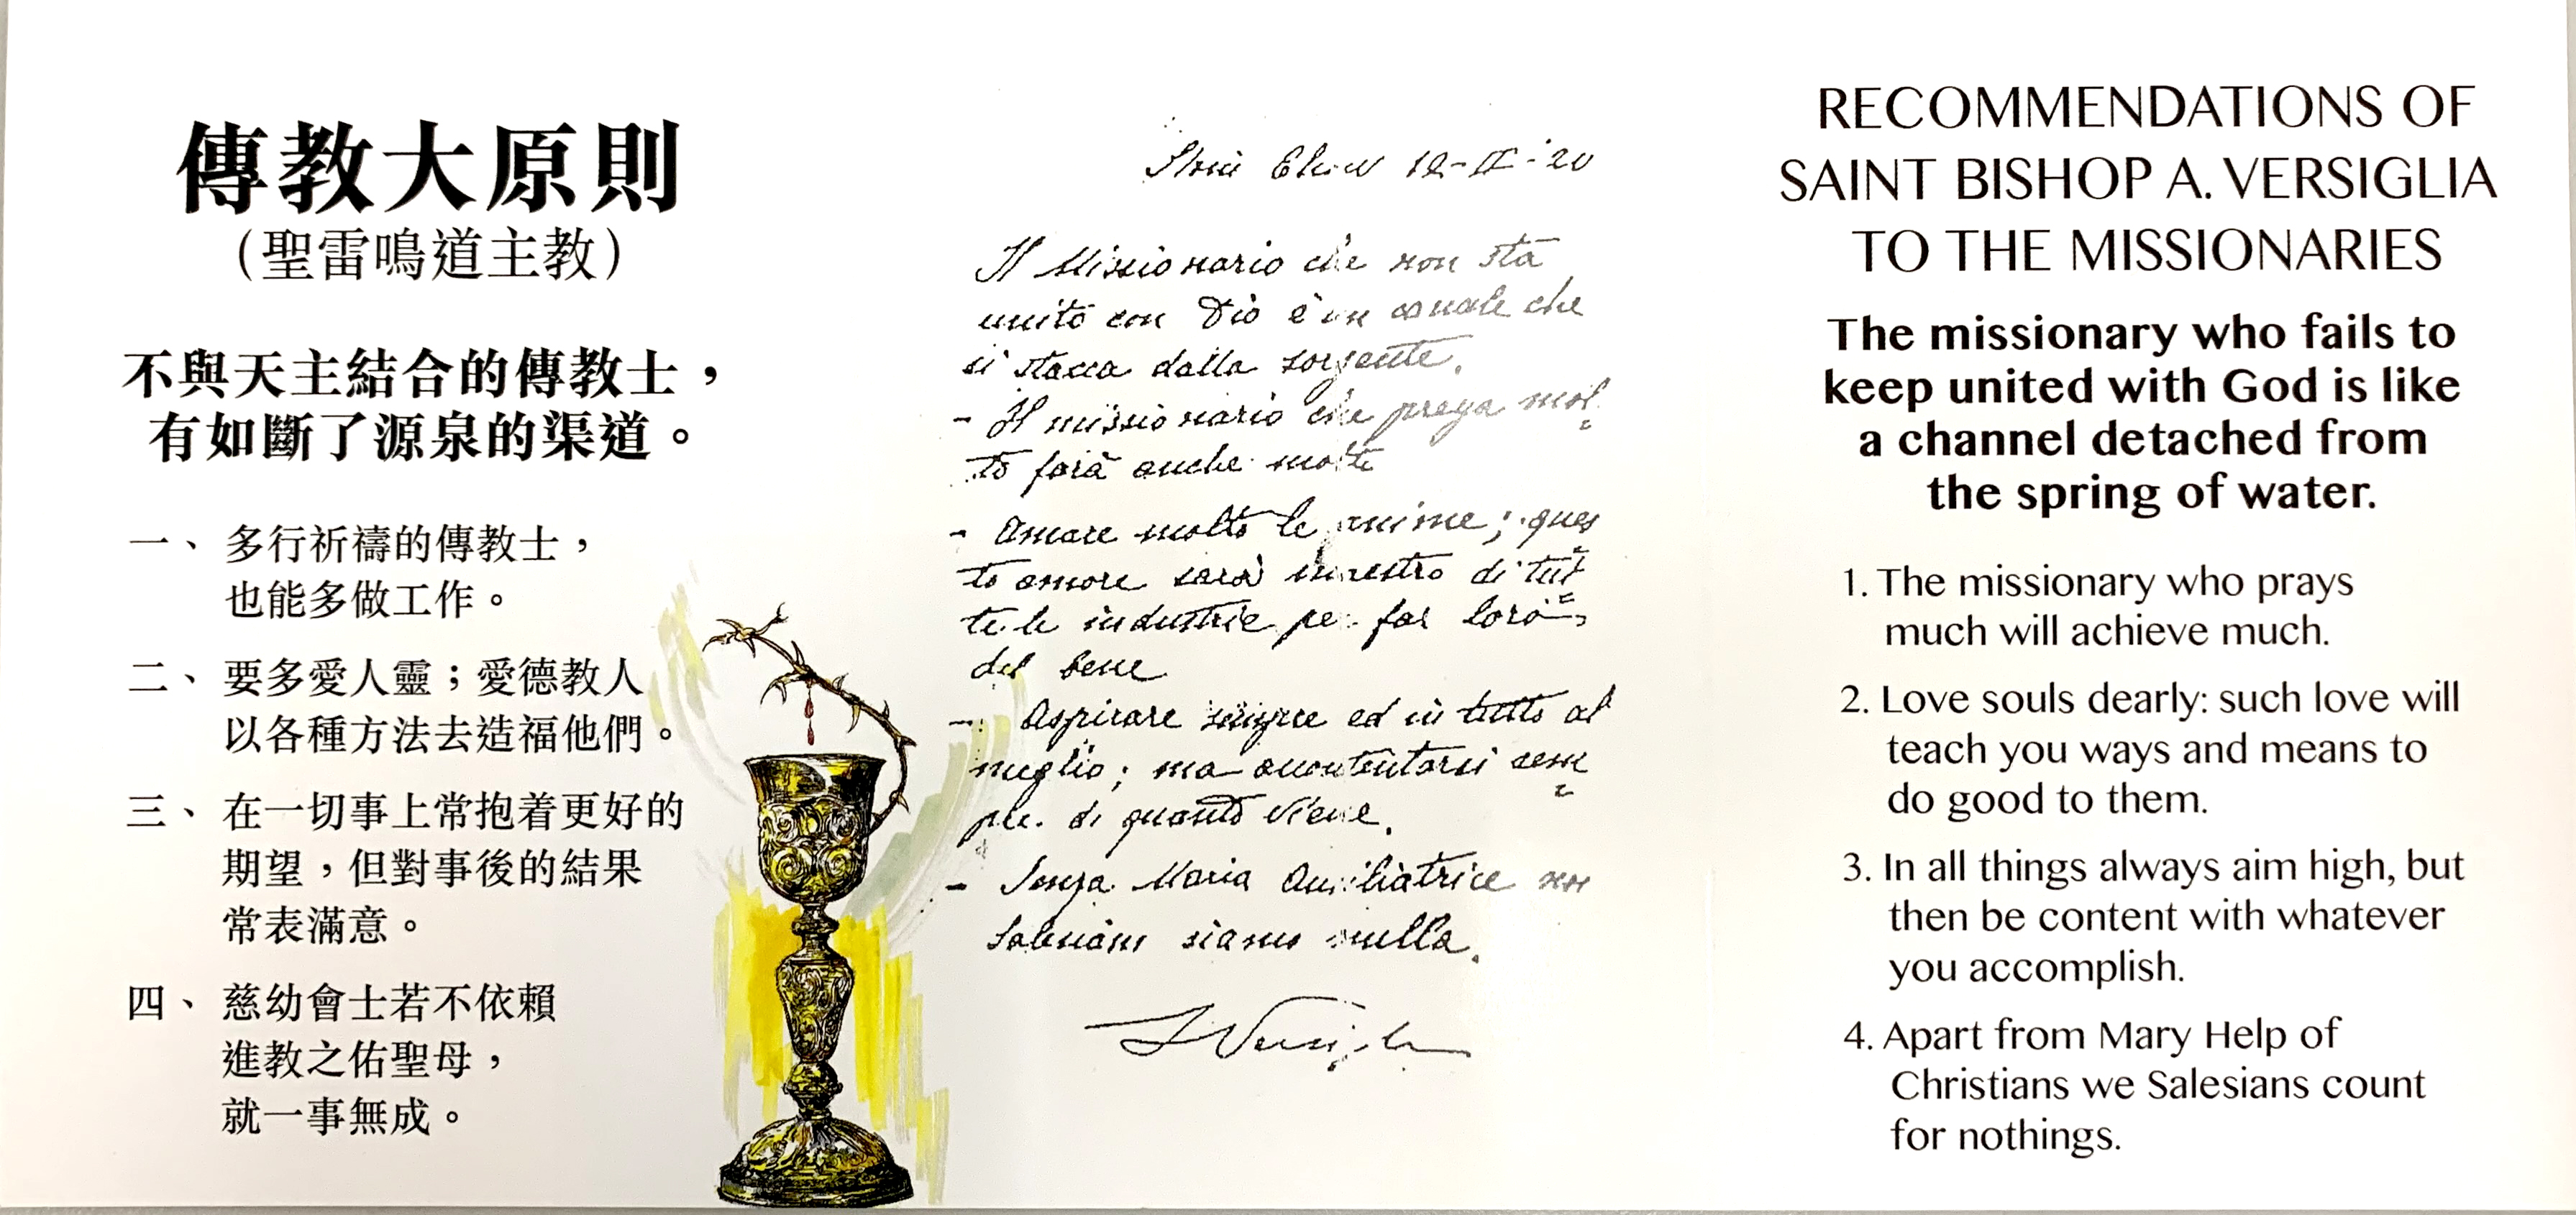 傳教大原則
(聖雷鳴道主教)
不與天主結合的傳教士，
有如斷了源泉的渠道。
一、多行祈禱的傳教士，
也能多做工作。
二、要多愛人靈；愛德教人
以各種方法去造福他們。
三、在一切事上常抱着更好的
期望，但對事後的結果
常表滿意。
四、慈幼會士若不依賴
進教之佑聖母，
就一事無成。
Il Missionario che non sta
unito con Dio è un canale che
si stacca dalla sorgente.
- Il missionario che prega mol=
to farà anche molto
- Amare molto le anime; ques=
to amore sarà maestro di tut=
te le industrie per far loro
del bene
- Aspirare sempre ed in tutto al
meglio; ma accontentarsi sem=
pre di quanto viene.
- Senza Maria Ausiliatrice noi
Salesiani siamo nulla.
RECOMMENDATIONS OF
SAINT BISHOP A. VERSIGLIA
TO THE MISSIONARIES
The missionary who fails to
keep united with God is like
a channel detached from
the spring of water.
1. The missionary who prays
much will achieve much.
2. Love souls dearly: such love will
teach you ways and means to
do good to them.
3. In all things always aim high, but
then be content with whatever
you accomplish.
4. Apart from Mary Help of
Christians we Salesians count
for nothings.